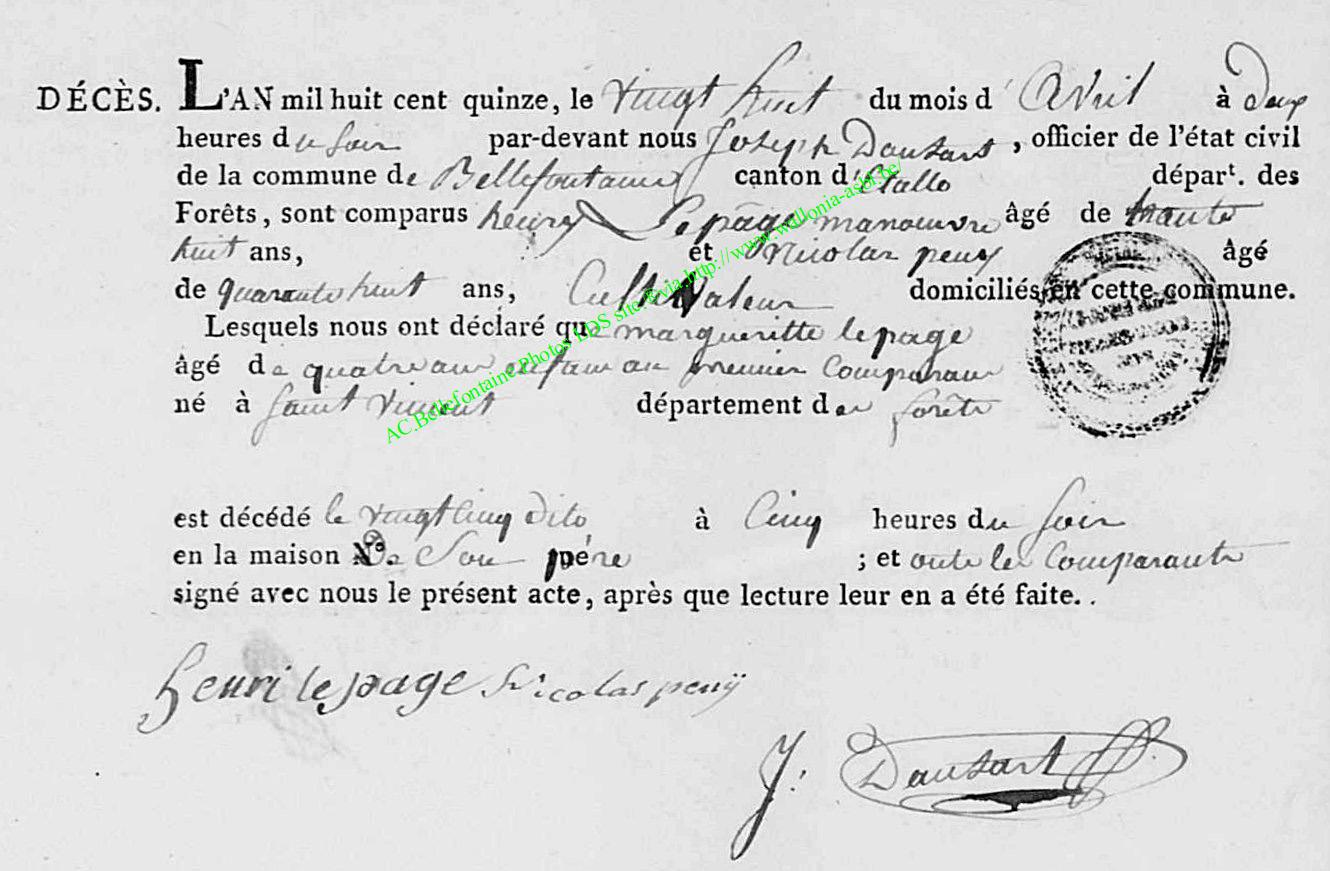 DÉCÈS. L'AN mil huit cent quinze, le vingt huit du mois d'Avril à deux
heures du soir par-devant nous Joseph Dausart, officier de l'état civil
de la commune de Bellefontaine canton d'Etalle départ. des
Forêts, sont comparus henry Lepâge manoeuvre âgé de trante
huit ans, et Nicolas peny âgé
de quarante huit ans, Cultivateur domiciliés en cette commune.
Lesquels nous ont déclaré que margueritte lepage
âgé de quatre ans enfant au premier Comparant
né à Saint Vincent département des forêts
est décédé le vingt cinq dito à Cinq heures du soir
en la maison N.º de Son père ; et onts les Comparants
signé avec nous le présent acte, après que lecture leur en a été faite. .
henri le page Nicolas penÿ
J. Dausart
AC.Bellefontaine Photos LDS site © via http://www.wallonia-asbl.be/